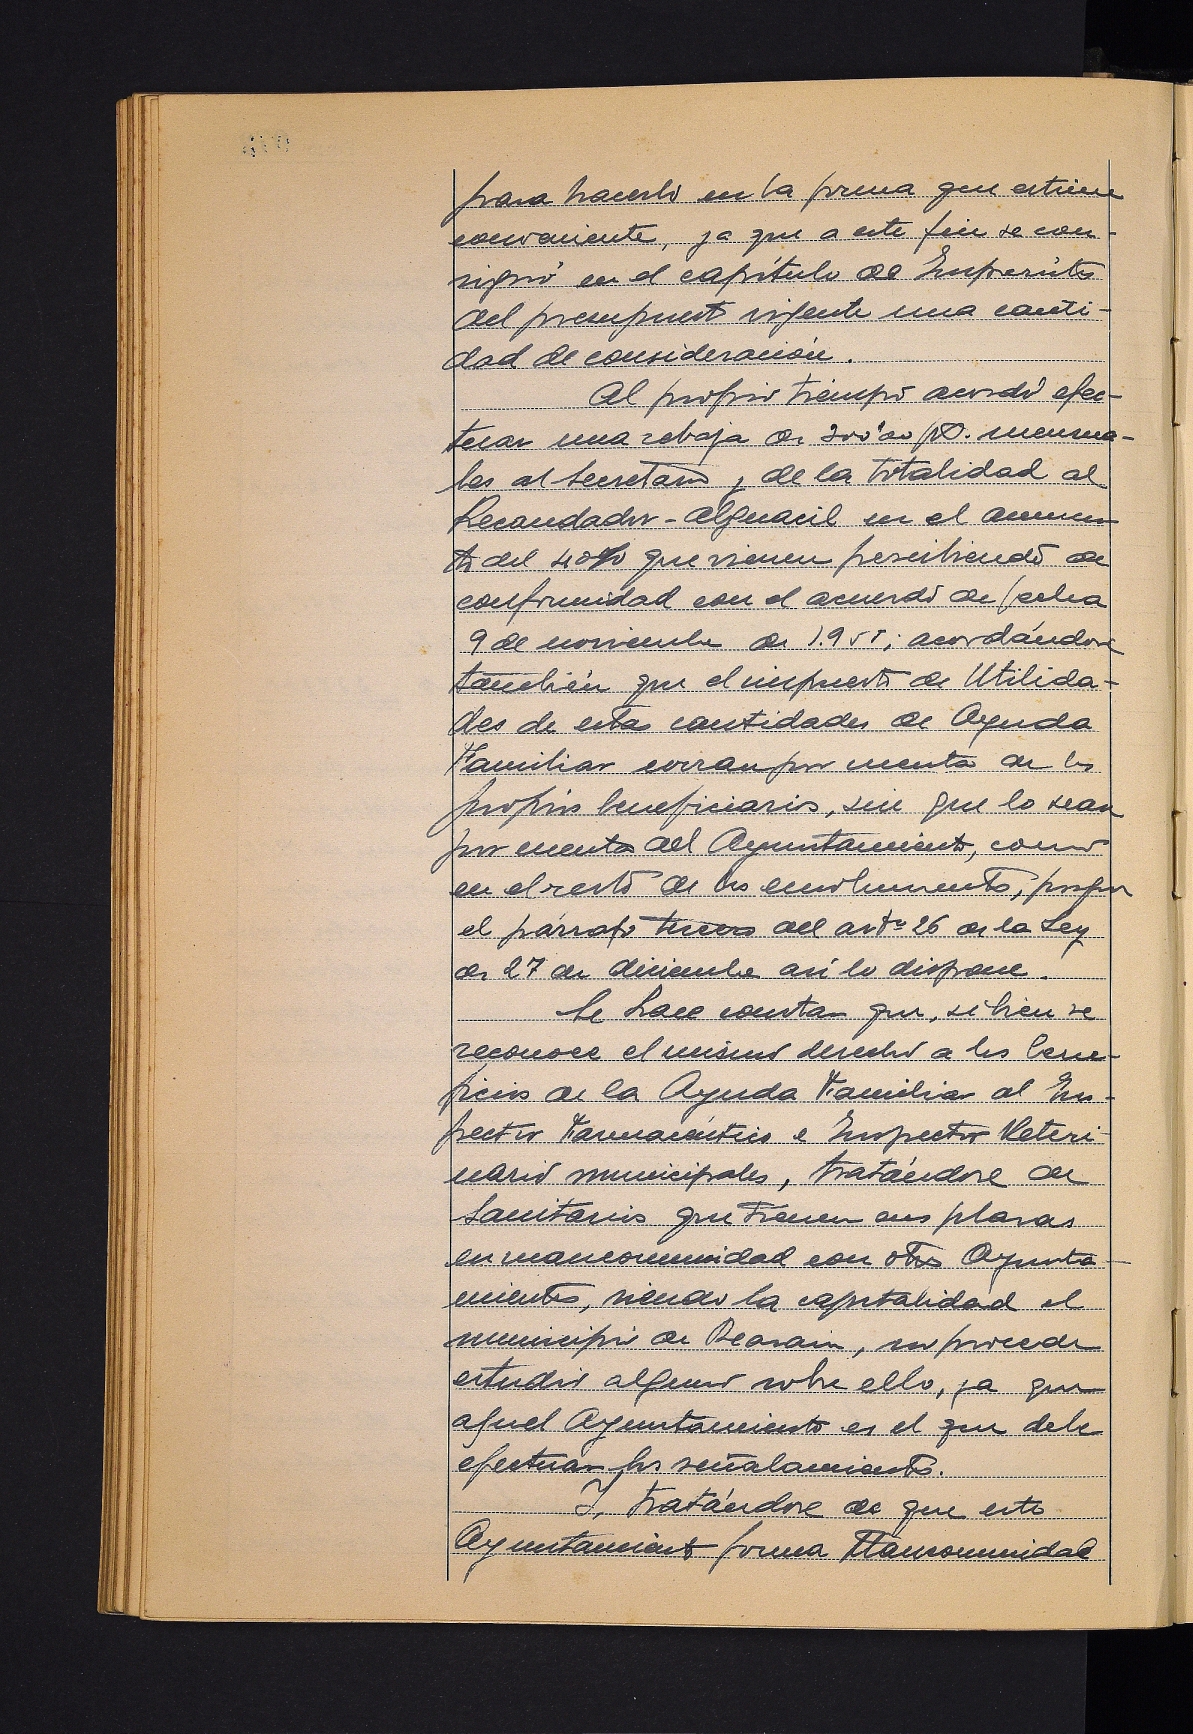 para hacerlo en la forma que estime
conveniente, ya que a este fin se con-
signó en el capítulo de Imprevistos
del presupuesto vigente una canti-
dad de consideración.
Al propio tiempo acordó efec-
tuar una rebaja de 200'00 pts. mensua-
les al Secretario y de la totalidad al
Recaudador-Alguacil en el aumen
to del 40% que vienen percibiendo de
conformidad con el acuerdo de fecha
9 de noviembre de 1.951; acordándose
también que el impuesto de Utilida-
des de estas cantidades de Ayuda
Familiar corran por cuenta de los
propios beneficiarios, sin que lo sean
por cuenta del Ayuntamiento, como
en el resto de los emolumentos, porque
el párrafo del artº 26 de la Ley
de 27 de diciembre así lo dispone.
Se hace constar que, si bien se
reconoce el mismo derecho a los bene-
ficios de la Ayuda Familiar al Ins-
pector Farmacéutico e Inspector Veteri-
nario municipales, tratándose de
Sanitarios que tienen sus plazas
en mancomunidad con otros Ayunta-
mientos, siendo la capitalidad el
municipio de Beasain, no procede
estudio alguno sobre ello, ya que
aquel Ayuntamiento es el que debe
efectuar los señalamientos.
Y, tratándose de que este
Ayuntamiento forma Mancomunidad